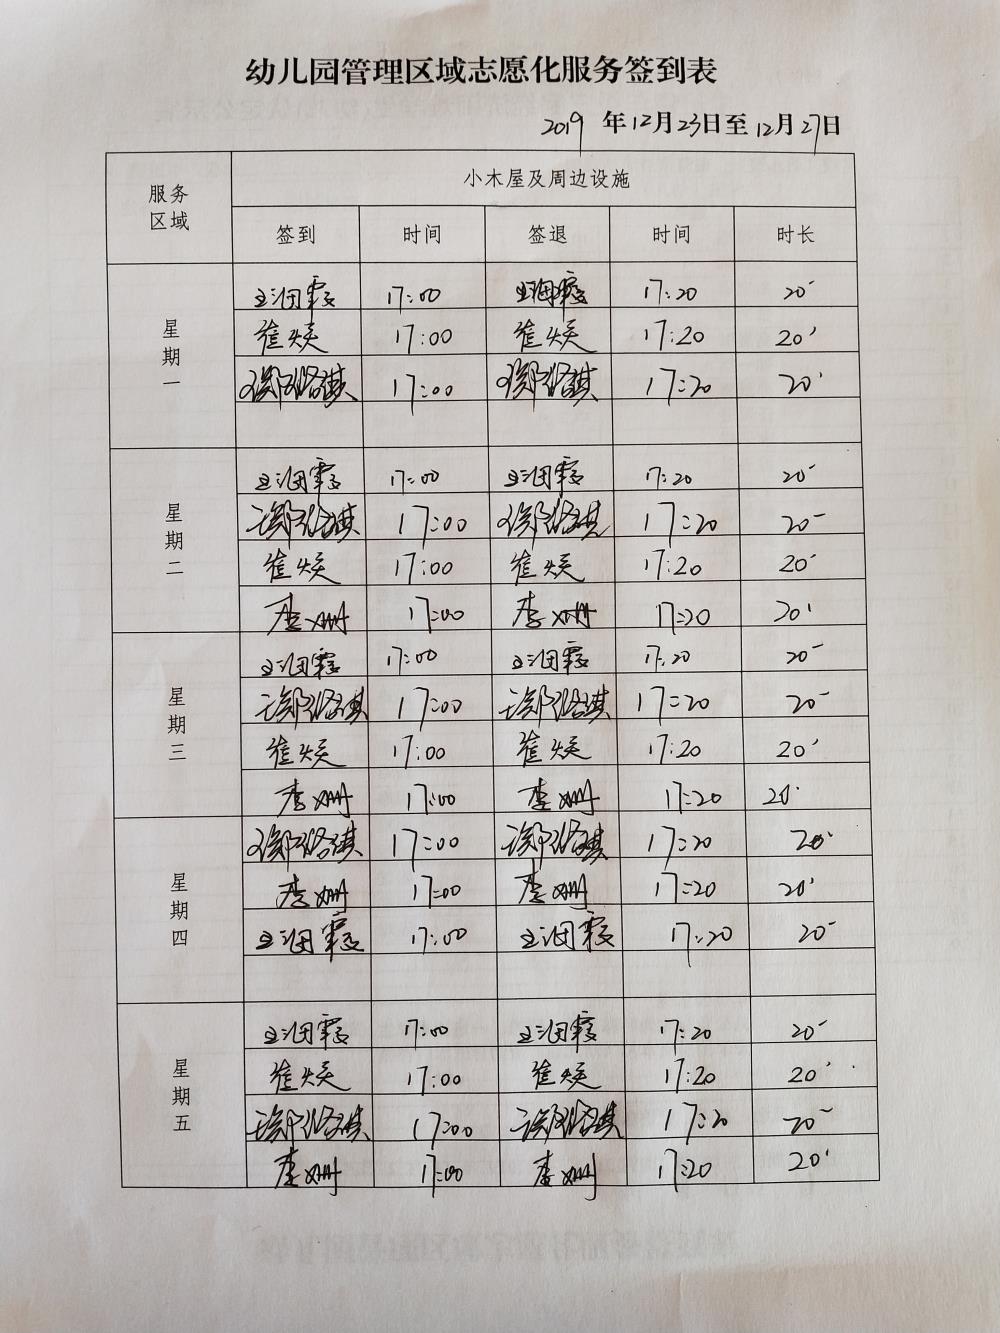 幼儿园管理区域志愿化服务签到表
2019 年12月23日至12月27日
服务区域 小木屋及周边设施
签到 时间 签退 时间 时长
星期一
17:00 17:20 20'
崔焕 17:00 崔焕 17:20 20'
17:00 17:20 20'
星期二
17:00 17:20 20'
17:00 17:20 20'
崔焕 17:00 崔焕 17:20 20'
李姗 17:00 李姗 17:20 20'
星期三
17:00 17:20 20'
17:00 17:20 20'
崔焕 17:00 崔焕 17:20 20'
李姗 17:00 李姗 17:20 20'
星期四
17:00 17:20 20'
李姗 17:00 李姗 17:20 20'
17:00 17:20 20'
星期五
17:00 17:20 20'
崔焕 17:00 崔焕 17:20 20'
17:00 17:20 20'
李姗 17:00 李姗 17:20 20'